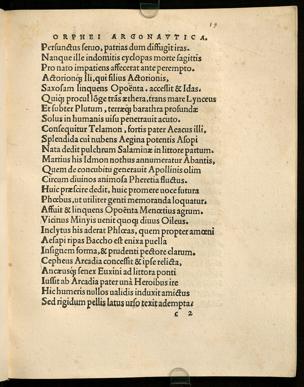 19
ORPHEI ARGONAVTICA.
Persunctus seruo, patrias dum diffugit iras.
Nanque ille indomitis cyclopas morte sagittis
Pro nato impatiens affecerat ante perempto.
Actorionq; illi, qui filius Actorionis,
Saxosam linquens Opoënta. accessit & Idas.
Quiq; procul lõge trãs æthera, trans mare Lynceus
Et subter Plutum, terræq; barathra profundæ
Solus in humanis uisu penetrauit acuto.
Consequitur Telamon, fortis pater Aeacus illi,
Splendida cui nubens Aegina potentis Asopi
Nata dedit pulchrum Salaminæ in littore partum.
Martius his Idmon nothus annumeratur Abantis,
Quem de concubitu generauit Apollinis olim
Circum diuinos animosa Pheretia fluctus.
Huic præscire dedit, huic promere uoce futura
Phœbus, ut utiliter genti memoranda loquatur.
Affuit & linquens Opoënta Menœtius agrum.
Vicinus Minyis uenit quoq; diuus Oileus.
Inclytus his aderat Phlœas, quem propter amœni
Aesapi ripas Baccho est enixa puella
Insignem forma, & prudenti pectore clarum.
Cepheus Arcadia concessit & ipse relicta,
Ancæusq; senex Euxini ad littora ponti
Iussit ab Arcadia pater unà Heroibus ire
Hic humeris nullos validis induxit amictus
Sed rigidum pellis latus urso texit ademptæ
c 2